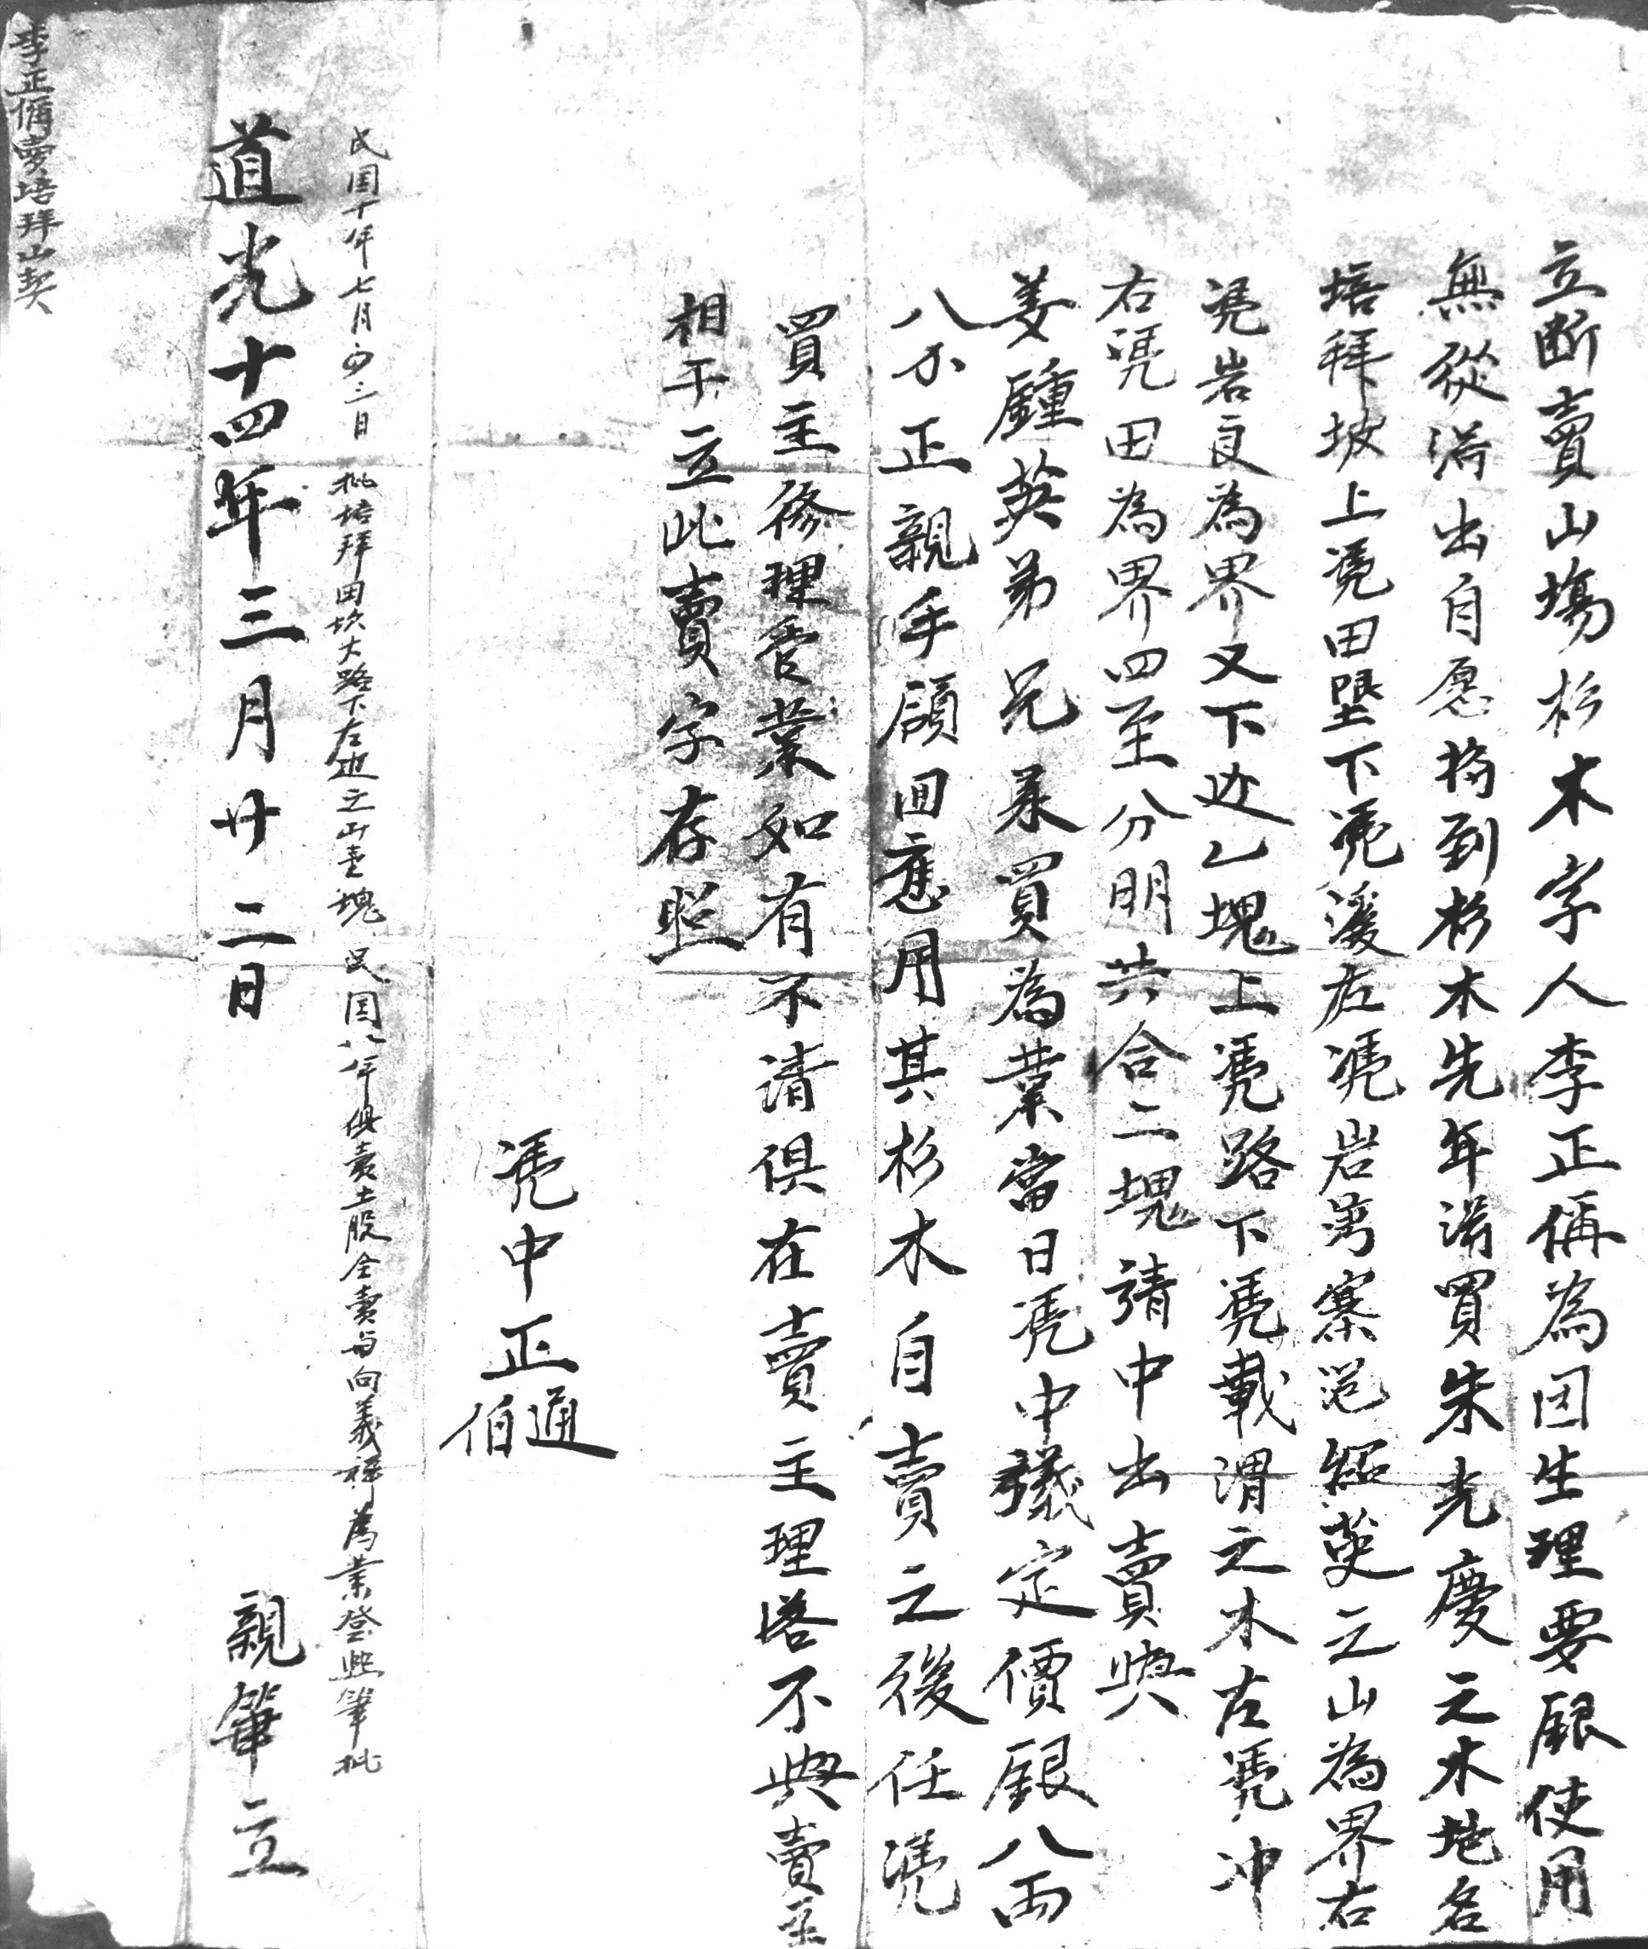 立断賣山塲杉木字人李正偁為因生理要銀使用
無從淂出自愿将到杉木先年淂買朱光慶之木地名
培拜坡上凴田墾下凴溪左凴岩湾寨 紹英之山為界右
凴岩良為界又下边乙塊上凴路下凴載渭之木左凴冲
右凴田為界四至分明共合二塊請中出賣與
姜鍾英弟兄承買為業當日凴中議定價銀八両
八分正親手領回應用其杉木自賣之後任凴
買主修理管業如有不清俱在賣主理落不與賣主
相干立此賣字存照
凴中正
通
伯
民国十年七月 三日 批培拜田坎大路下左边之山壹塊民国八年俱賣土股全賣与向義祥為業登熙筆批
道光十四年三月廿二日 親筆立
李正偁賣培拜山契